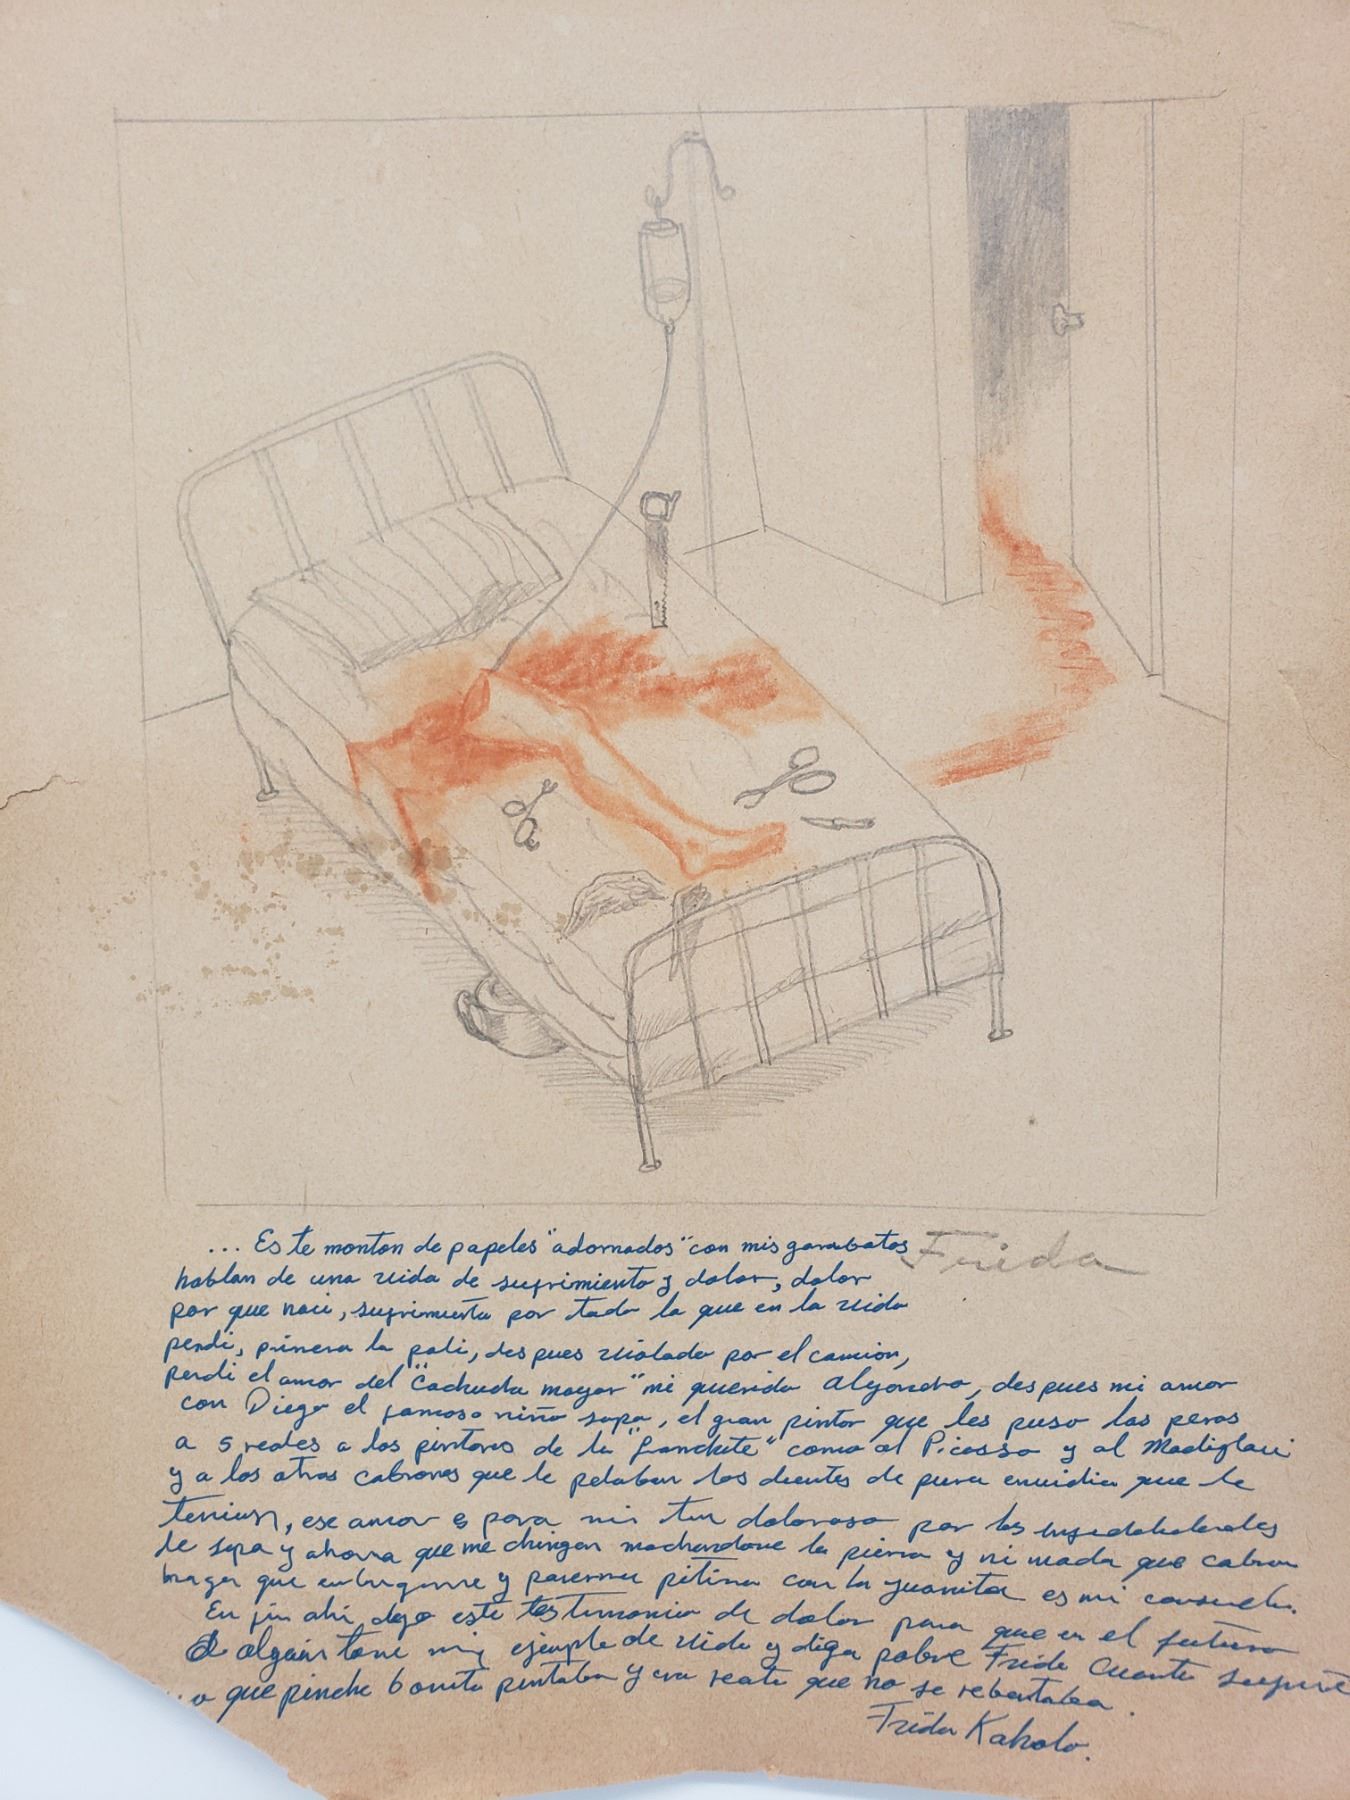 ... Este monton de papeles "adornados" con mis garabatos
Frida
hablan de una vida de sufrimiento y dolor, dolor
por que naci, sufrimiento por todo lo que en la vida
perdi, primero la poli, despues violada por el camion,
perdi el amor del "Cachucha mayor" mi querido Alejandro, despues mi amor
con Diego el famoso niño sapo, el gran pintor que les puso las peras
a 5 reales a los pintores de la "Franchute" como al Picasso y al Modigliani
y a los otros cabrones que le pelaban los dientes de pura envidia que le
tenian, ese amor es para mi tan doloroso por las
de sapo y ahora que me chingan mochandome la pierna y ni nada que cabron
haga que embriagarme y ponerme pitima con la juanita es mi consuelo.
En fin ahi dejo este testimonio de dolor para que en el futuro
alguien tome mi ejemplo de vida y diga pobre Frida Cuanto
o que pinche bonito pintaba y era reata que no se rebentaba.
Frida Kaholo.